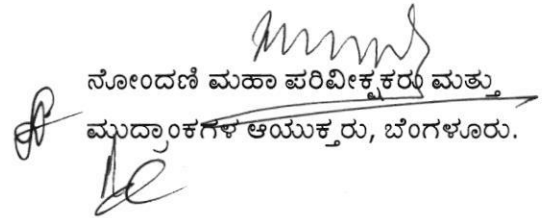 ನೋಂದಣಿ ಮಹಾ ಪರಿವೀಕ್ಷಕರು ಮತ್ತು
ಮುದ್ರಾಂಕಗಳ ಆಯುಕ್ತರು, ಬೆಂಗಳೂರು.